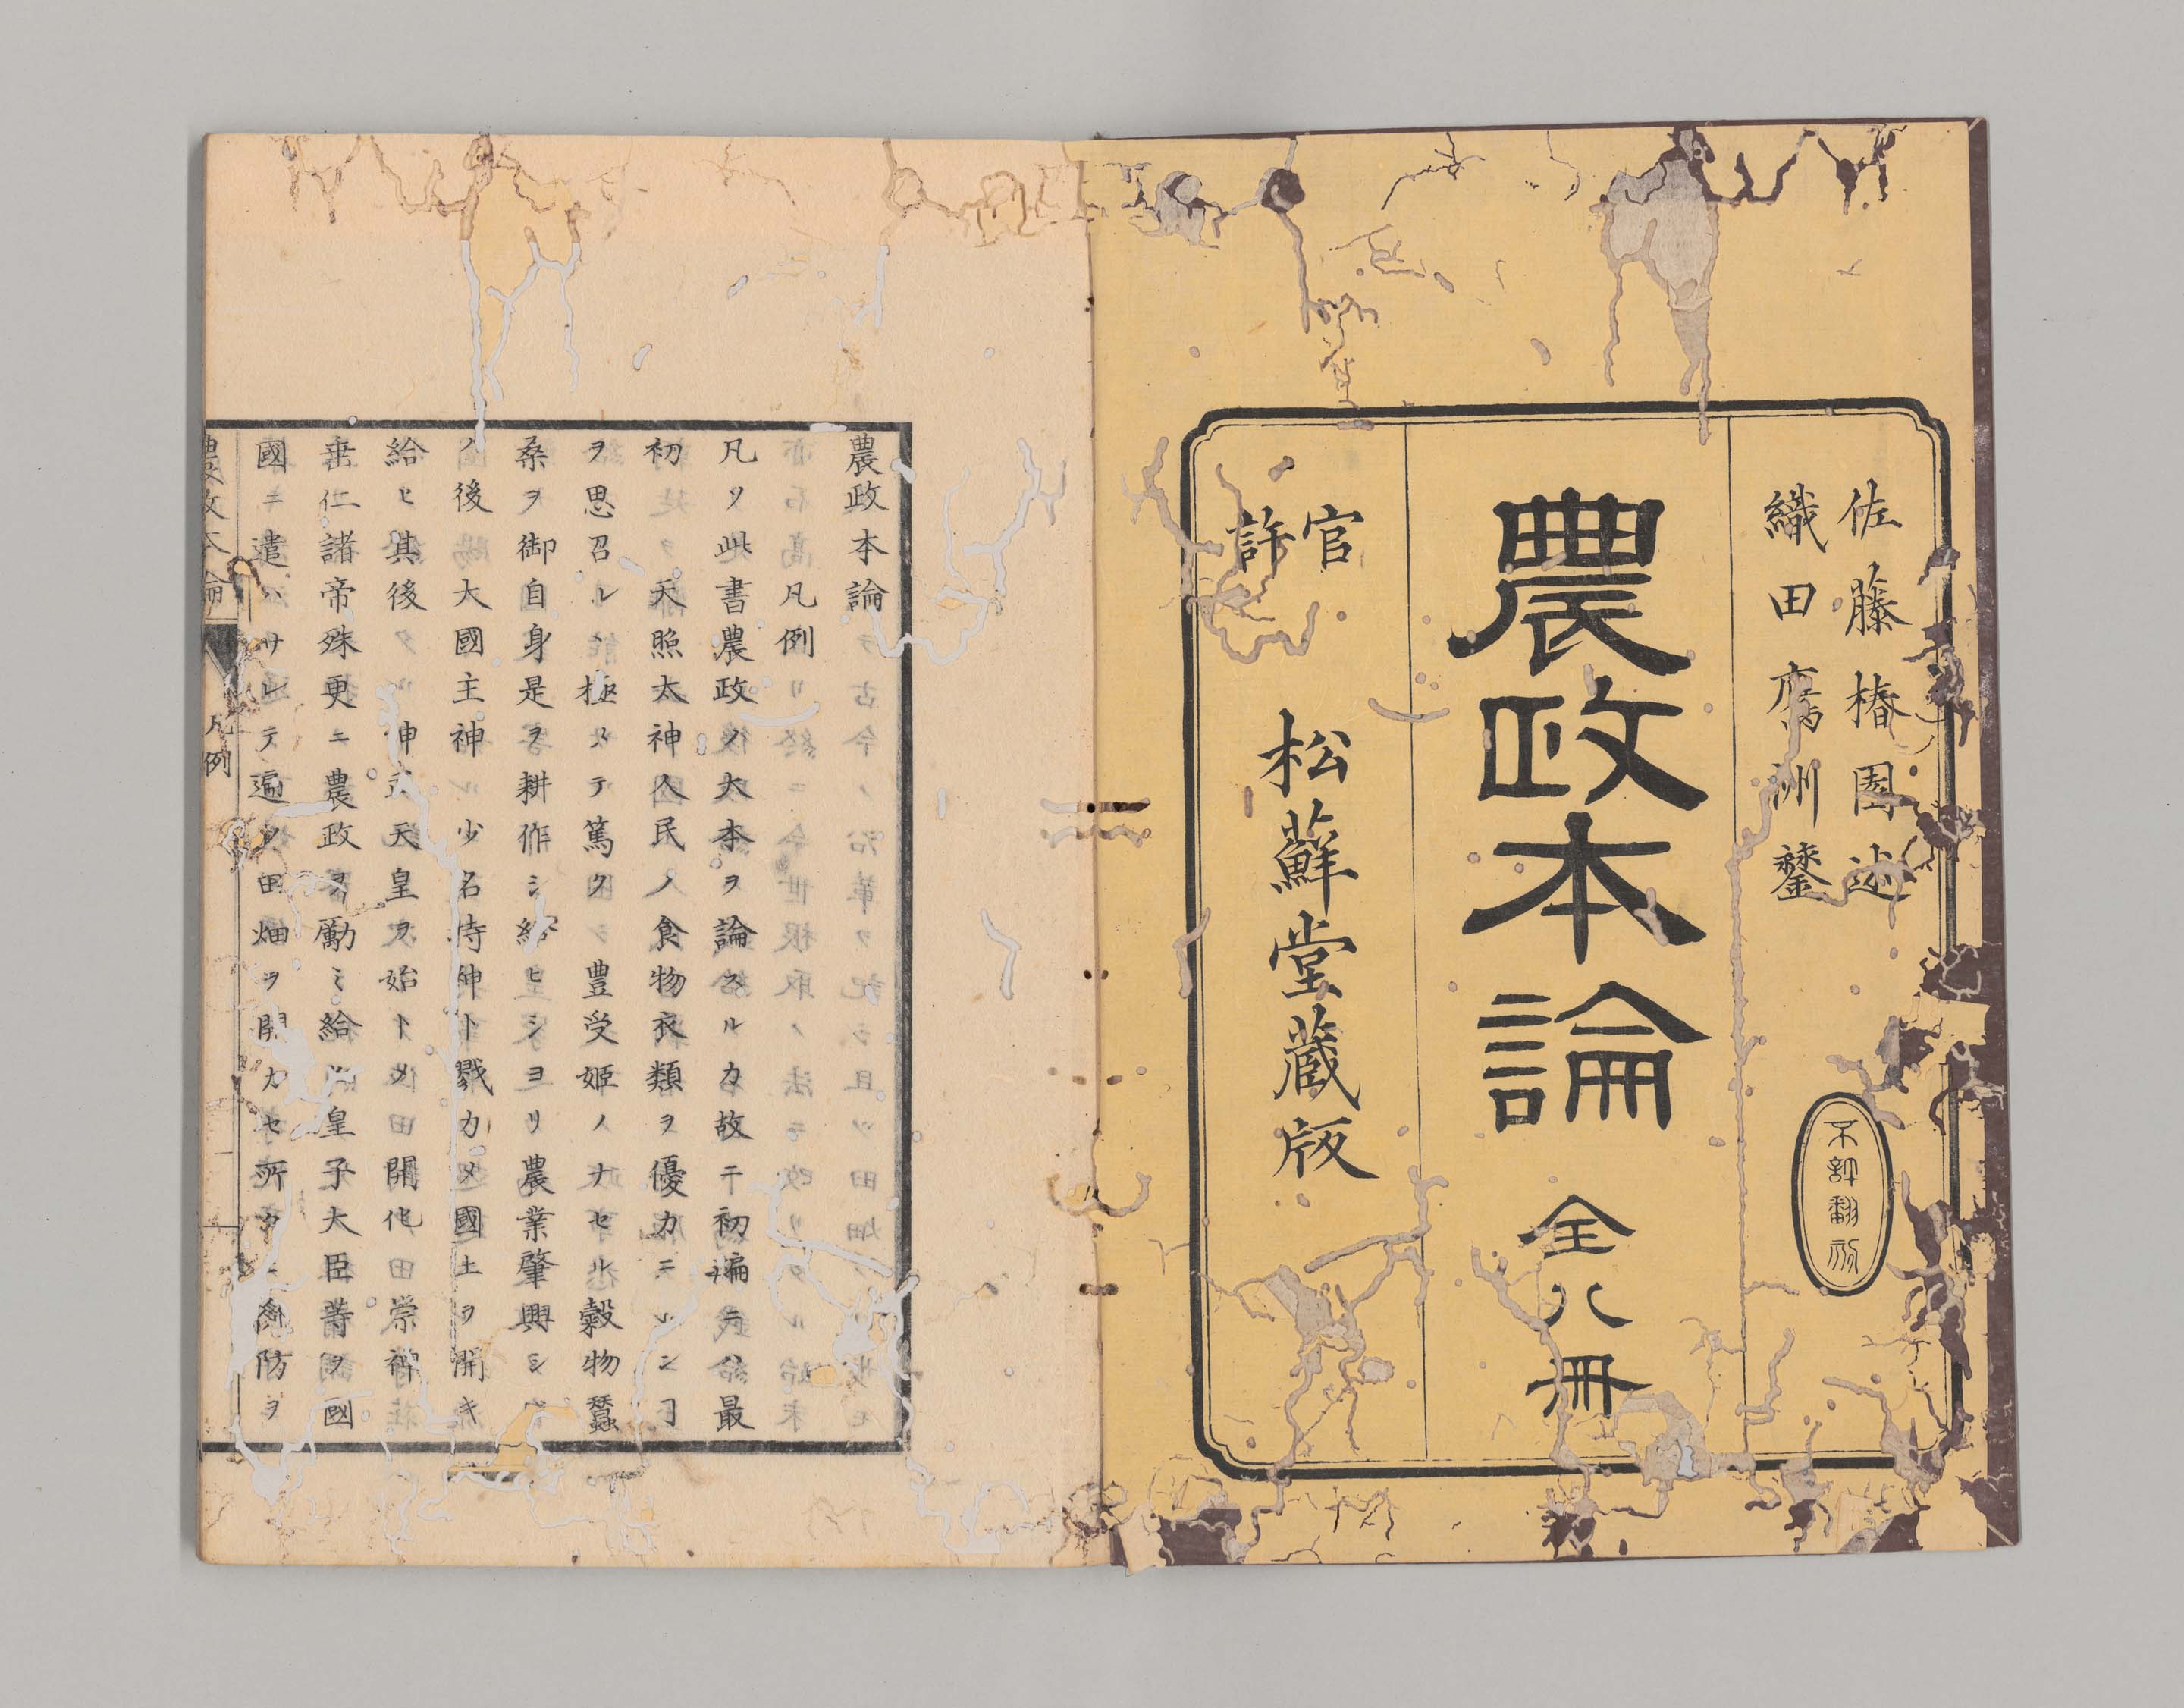 佐藤椿園述
織田鷹洲鐫
不許翻刻
農政本論 全八冊
官許
松蘇堂蔵版
農政本論
凡例
凡ソ此書農政ノ大本ヲ論スルカ故ニ初編ニハ最
初 天照太神人民ノ食物衣類ヲ優カニシ
ヲ思召レ極メテ篤ク豊受姫ノナセル穀物蠶
桑ヲ御自身是ヲ耕作シ給ヒシヨリ農業肇興シ
ノ後大國主神少名持神ト戮カメ國土ヲ開キ
給ヒ其後 神武天皇ヲ始トメ開化崇神
垂仁諸帝殊更ニ農政ヲ勵ミ給ヒ皇子大臣等ヲ國
國ニ遣ハサレテ遍ク田畑ヲ開カセ所々ニ隄防ヲ
農政本論 凡例